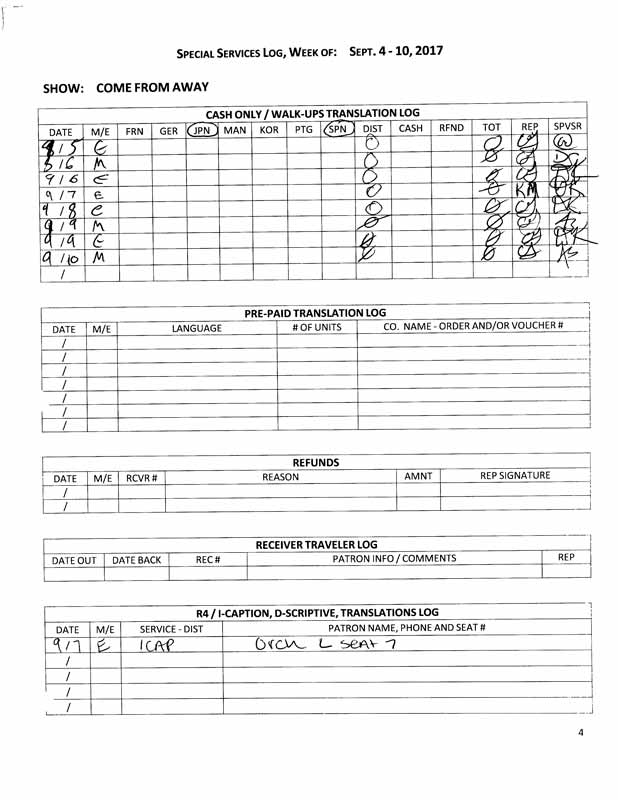 SPECIAL SERVICES LOG, WEEK OF: SEPT. 4 - 10, 2017
SHOW: COME FROM AWAY
CASH ONLY / WALK-UPS TRANSLATION LOG
DATE M/E FRN GER JPN MAN KOR PTG SPN DIST CASH RFND TOT REP SPVSR
9/5 E 0 0
9/6 M 0 0
9/6 E 0 0
9/7 E 0 0 KM
9/8 E 0 0
9/9 M 0 0
9/9 E 0 0
9/10 M 0 0
/
PRE-PAID TRANSLATION LOG
DATE M/E LANGUAGE # OF UNITS CO. NAME - ORDER AND/OR VOUCHER #
/
/
/
/
/
/
/
REFUNDS
DATE M/E RCVR # REASON AMNT REP SIGNATURE
/
/
RECEIVER TRAVELER LOG
DATE OUT DATE BACK REC # PATRON INFO / COMMENTS REP
R4 / I-CAPTION, D-SCRIPTIVE, TRANSLATIONS LOG
DATE M/E SERVICE - DIST PATRON NAME, PHONE AND SEAT #
9/7 E ICAP Orch L seat 7
/
/
/
/
4